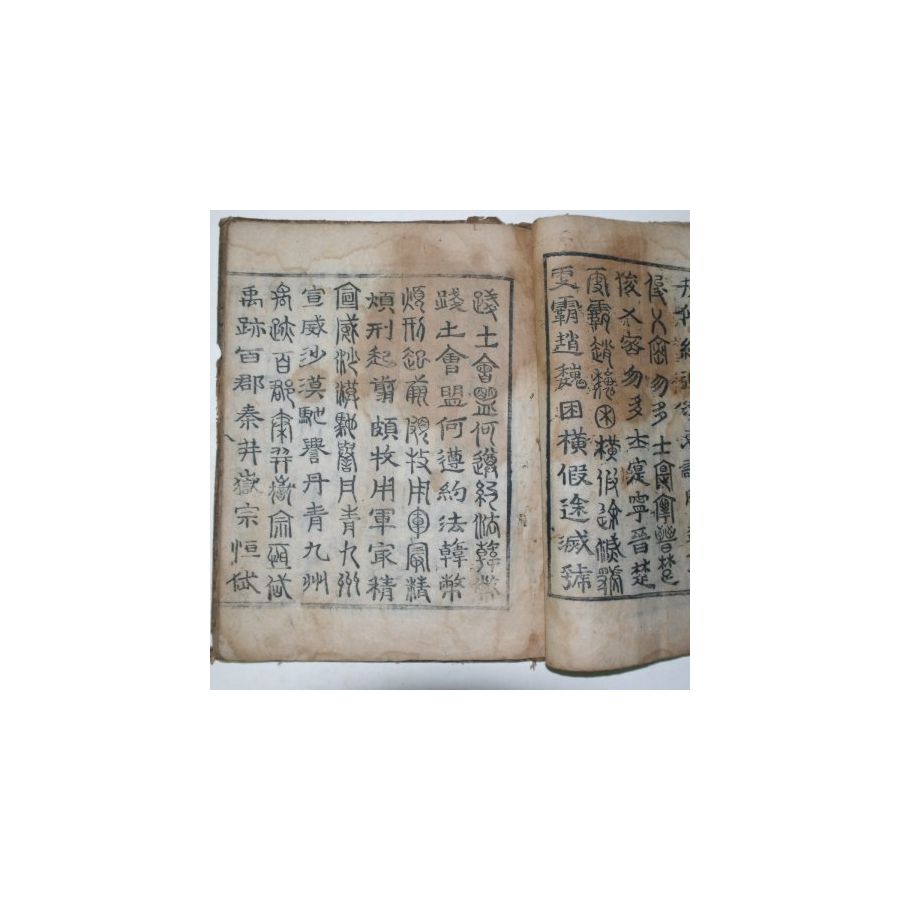 俊乂密勿多士寔寧晉楚
俊乂密勿多士寔寧晉楚
更霸趙魏困橫假途滅虢
更霸趙魏困橫假途滅虢
踐土會盟何遵約法韓幣
踐土會盟何遵約法韓幣
煩刑起翦頗牧用軍最精
煩刑起翦頗牧用軍最精
宣威沙漠馳譽丹青九州
宣威沙漠馳譽丹青九州
禹跡百郡秦并嶽宗恒岱
禹跡百郡秦并嶽宗恒岱